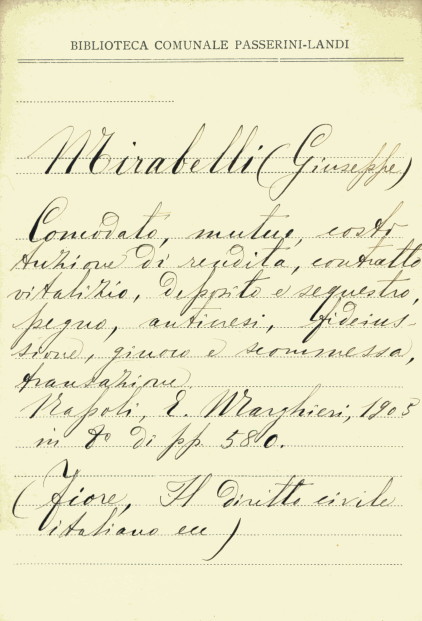 BIBLIOTECA COMUNALE PASSERINI-LANDI
Mirabelli (Giuseppe)
Comodato, mutuo, costi-
tuzione di rendita, contratto
vitalizio, deposito e sequestro,
pegno, anticresi, fideius-
sione, giuoco e scommessa,
transazione.
Napoli, E. Marghieri, 1903
in 8º di pp. 580.
(Fiore, Il diritto civile
italiano ecc)